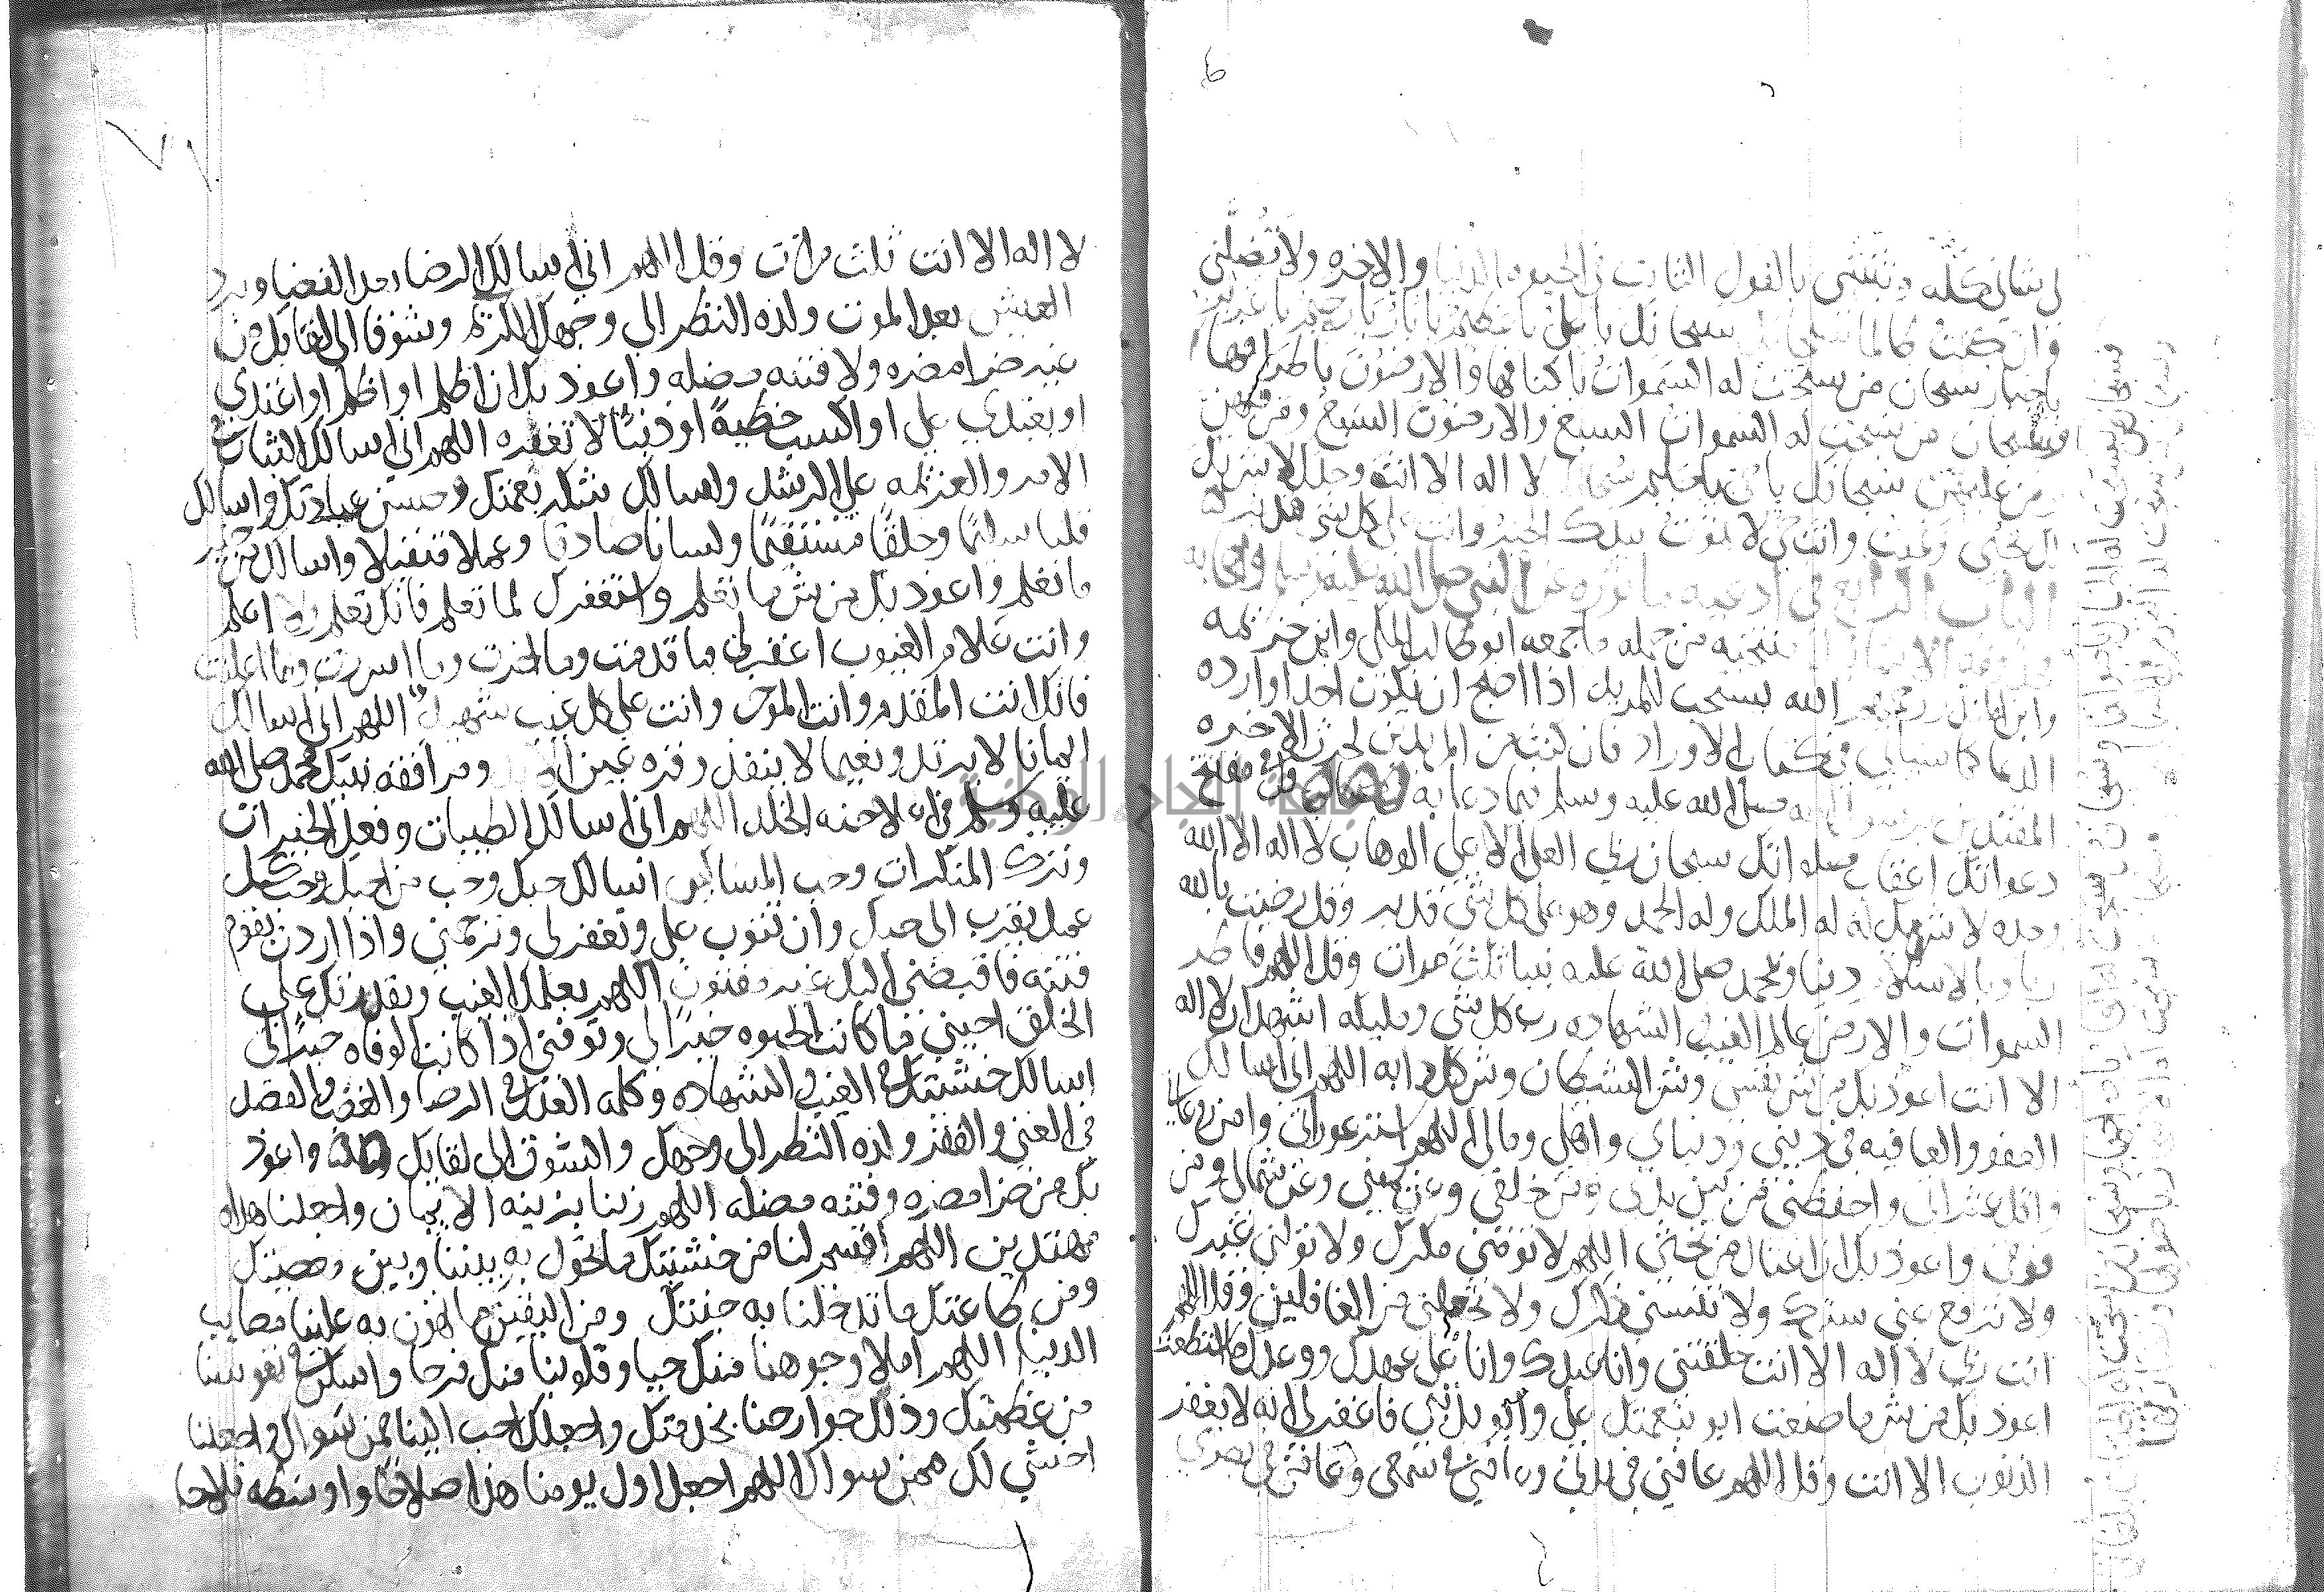 لى شانى كله وثبتنى بالقول الثابت فى الحيوه الدنيا والاخره ولا تضلنى
وان كنت ظالما سبحانك يا على يا عظيم يا بار يا رحيم يا عزيز
يا جبار سبحان من سبحت له السموات باكنافها والارضون باطرافها
فسبحان من سبحت له السموات السبع والارضون السبع ومن فيهن
ومن عليهن سبحانك يا حى يا حليم سبحانك لا اله الا انت وحدك لا شريك
لك تحيى وتميت وانت حى لا تموت بيدك الخير وانت على كل شى قدير
الباب الرابع فى ادعيه ماثوره عن النبى صلى الله عليه وسلم واصحابه
منتخبه من جمله ما جمعه ابو طالب المكى وابن خزيمه
وابن المنذر رحمهم الله يستحب للمريد اذا اصبح ان يكون احد اوراده
الدعا كما سياتى فى كتاب الاوراد فان كنت من المريدين لحرث الاخره
المقتدين برسول الله صلى الله عليه وسلم فيما دعا به فقل فى مفتتح
دعواتك اعقاب صلواتك سبحان ربى العلى الاعلى الوهاب لا اله الا الله
وحده لا شريك له له الملك وله الحمد وهو على كل شى قدير وقل رضيت بالله
ربا وبالاسلام دينا وبمحمد صلى الله عليه نبيا ثلث مرات وقل اللهم فاطر
السموات والارض عالم الغيب والشهاده رب كل شى ومليكه اشهد ان لا اله
الا انت اعوذ بك من شر نفسى وشر الشيطان وشركه اللهم انى اسالك
العفو والعافيه فى دينى ودنياى واهلى ومالى اللهم استر عوراتى وامن روعاتى
واقل عثراتى واحفظنى من بين يدى ومن خلفى وعن يمينى وعن شمالى ومن
فوقى واعوذ بك ان اغتال من تحتى اللهم لا تومنى مكرك ولا تولنى غيرك
ولا ترفع عنى سترك ولا تنسنى ذكرك ولا تجعلنى من الغافلين وقل اللهم
انت ربى لا اله الا انت خلقتنى وانا عبدك وانا على عهدك ووعدك ما استطعت
اعوذ بك من شر ما صنعت ابو بنعمتك على وابو بذنبى فاغفر لى انه لا يغفر
الذنوب الا انت وقل اللهم عافنى فى بدنى وعافنى فى سمعى وعافنى فى بصرى
لا اله الا انت ثلث مرات وقل اللهم انى اسالك الرضا بعد القضا وبرد
العيش بعد الموت ولذه النظر الى وجهك الكريم وشوقا الى لقايك من
غير ضرا مضره ولا فتنه مضله واعوذ بك ان اظلم او اظلم او اعتدى
او يعتدى على او اكسب خطية او ذنبا لا تغفره اللهم انى اسالك الثبات فى
الامر والعزيمه على الرشد واسالك شكر نعمتك وحسن عبادتك واسالك
قلبا سليما وخلقا مستقيما ولسانا صادقا وعملا متقبلا واسالك من خير
ما تعلم واعوذ بك من شر ما تعلم واستغفرك لما تعلم فانك تعلم ولا اعلم
وانت علام الغيوب اغفر لى ما قدمت وما اخرت وما اسررت وما اعلنت
فانك انت المقدم وانت الموخر وانت على كل غيب شهيد اللهم انى اسالك
ايمانا لا يرتد ونعيما لا ينفد وقره عين الابد ومرافقه نبيك محمد صلى الله
عليه وسلم فى اعلا جنه الخلد اللهم انى اسالك الطيبات وفعل الخيرات
وترك المنكرات وحب المساكين اسالك حبك وحب من احبك وحب كل
عمل يقرب الى حبك وان تتوب على وتغفر لى وترحمنى واذا اردت بقوم
فتنه فاقبضنى اليك غير مفتون اللهم بعلمك الغيب وبقدرتك على
الخلق احينى ما كانت الحيوه خيرا لى وتوفنى اذا كانت الوفاه خيرا لى
اسالك خشيتك فى الغيب والشهاده وكلمه العدل فى الرضا والغضب والقصد
فى الغنى والفقر ولذه النظر الى وجهك والشوق الى لقايك واعوذ
بك من ضرا مضره وفتنه مضله اللهم زينا بزينه الايمان واجعلنا هداه
مهتدين اللهم اقسم لنا من خشيتك ما تحول به بيننا وبين معصيتك
ومن طاعتك ما تدخلنا به جنتك ومن اليقين ما تهون به علينا مصايب
الدنيا اللهم املا وجوهنا منك حيا وقلوبنا منك فرحا واسكن فى نفوسنا
من عظمتك وذلل جوارحنا بخدمتك واجعلك احب الينا ممن سواك واجعلنا
اخشى لك ممن سواك اللهم اجعل اول يومنا هذا صلاحا واوسطه فلاحا